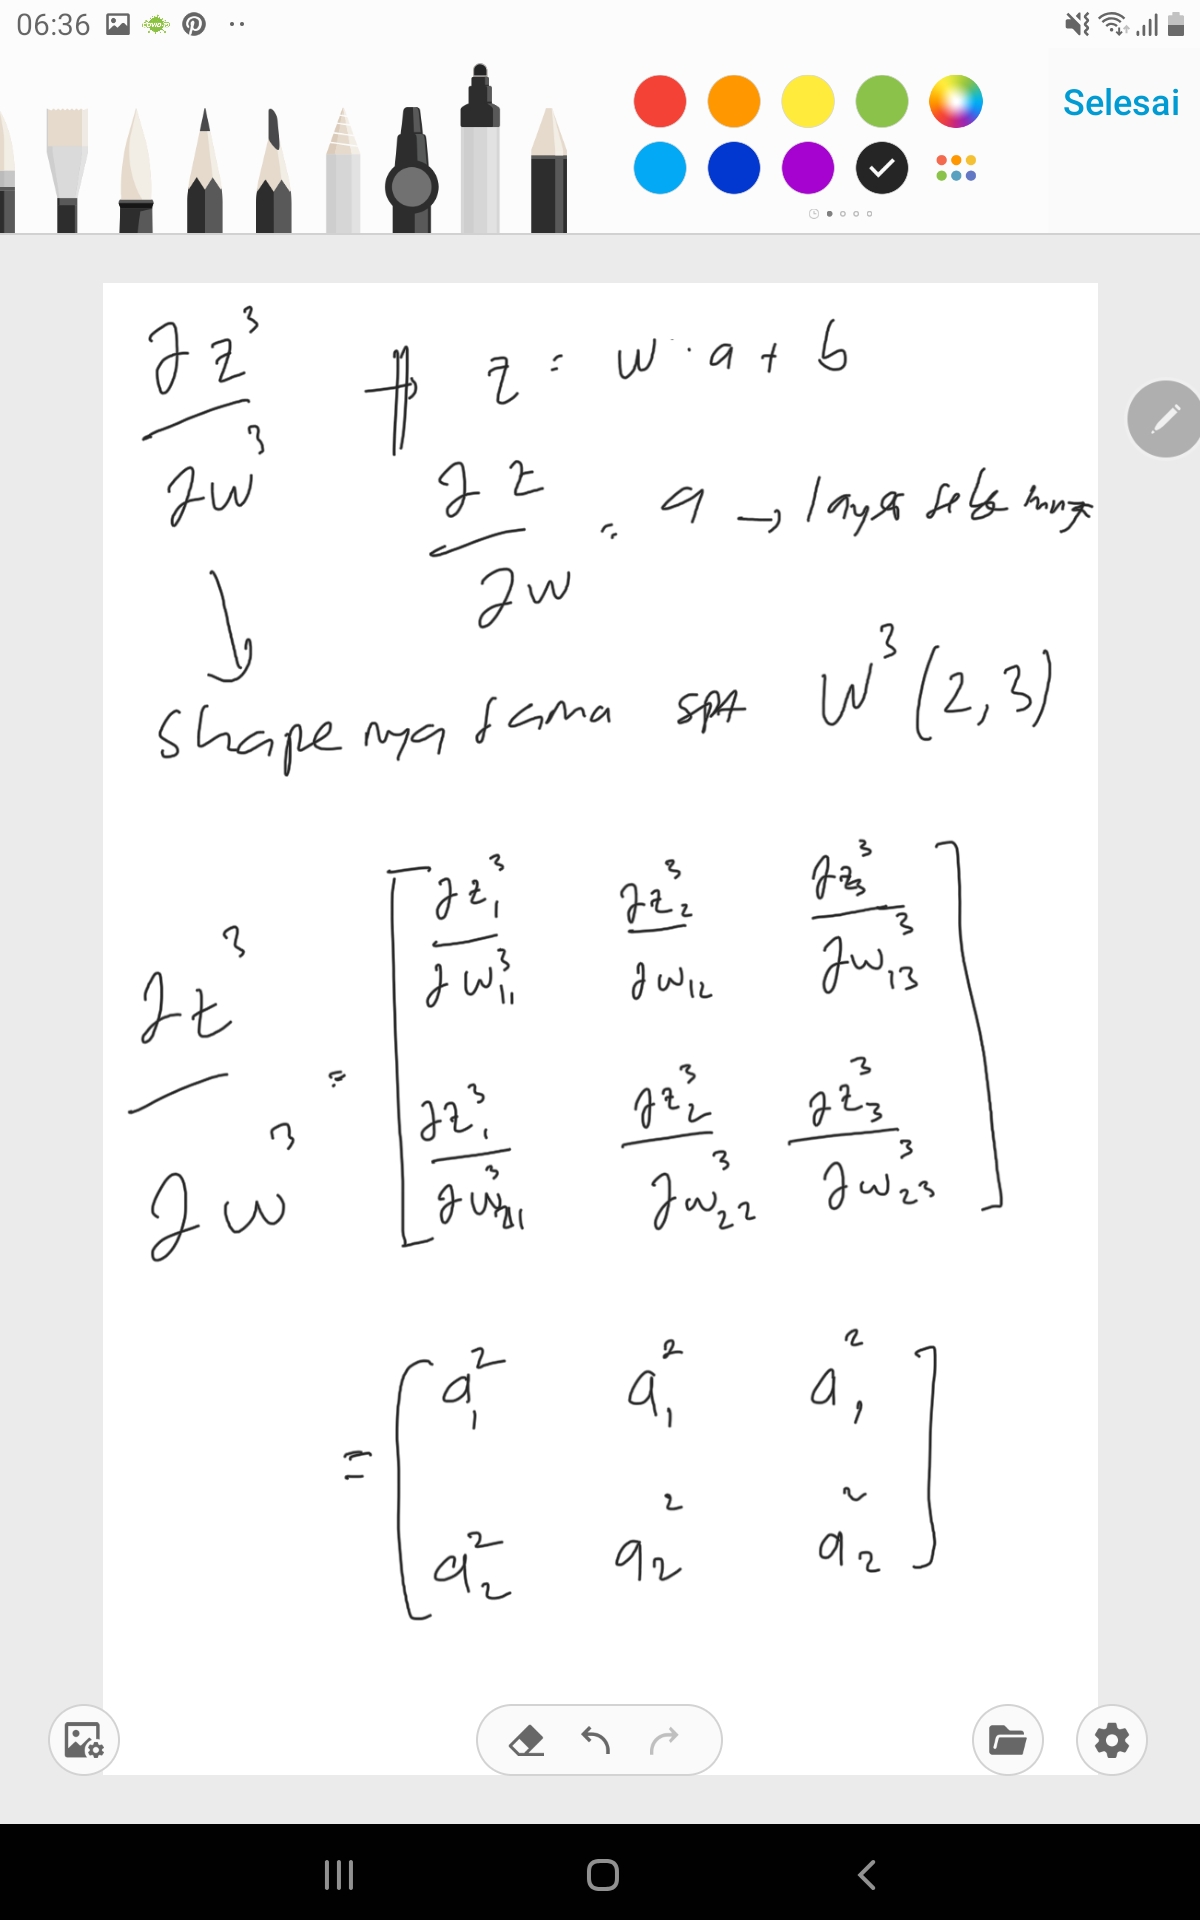 06:36
Selesai
∂z³/∂w³ → z = w · a + b
∂z/∂w = a → layer sebelumnya
↓
shape nya sama spt W³ (2,3)
∂z³/∂w³ = [ ∂z₁³/∂w₁₁³ ∂z₂³/∂w₁₂ ∂z₃³/∂w₁₃³
∂z₁³/∂w₂₁³ ∂z₂³/∂w₂₂³ ∂z₃³/∂w₂₃³ ]
= [ a₁² a₁² a₁²
a₂² a₂² a₂² ]